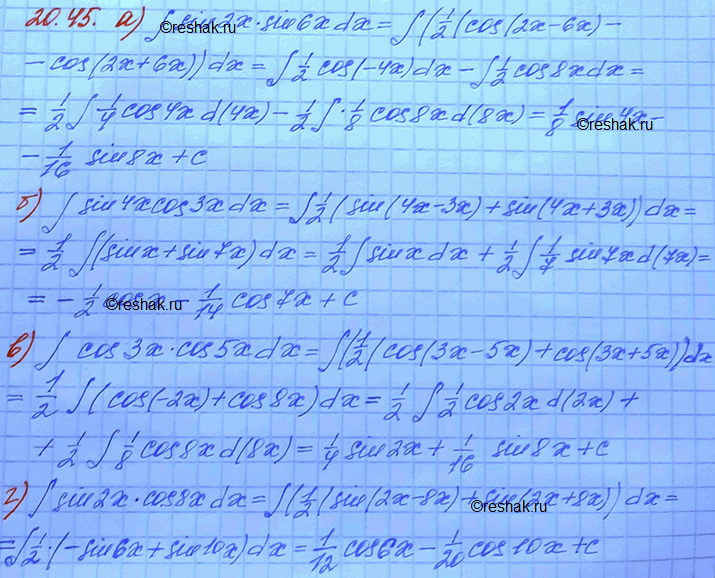 20.45. а) ∫ sin2x·sin6x dx = ∫(½(cos(2x−6x) −
− cos(2x+6x)) dx = ∫ ½ cos(−4x) dx − ∫ ½ cos8x dx =
= ½ ∫ ¼ cos4x d(4x) − ½ ∫ · ⅛ cos8x d(8x) = ⅛ sin4x −
− 1/16 sin8x + c
б) ∫ sin4x cos3x dx = ∫ ½ (sin(4x−3x) + sin(4x+3x)) dx =
= ½ ∫ (sinx + sin7x) dx = ½ ∫ sinx dx + ½ ∫ 1/7 sin7x d(7x) =
= − ½ cosx − 1/14 cos7x + c
в) ∫ cos3x·cos5x dx = ∫(½(cos(3x−5x) + cos(3x+5x)) dx
= ½ ∫ (cos(−2x) + cos8x) dx = ½ ∫ ½ cos2x d(2x) +
+ ½ ∫ ⅛ cos8x d(8x) = ¼ sin2x + 1/16 sin8x + c
г) ∫ sin2x·cos8x dx = ∫(½(sin(2x−8x) + sin(2x+8x)) dx =
= ∫ ½ · (−sin6x + sin10x) dx = 1/12 cos6x − 1/20 cos10x + c
©reshak.ru
©reshak.ru
©reshak.ru
©reshak.ru
©reshak.ru